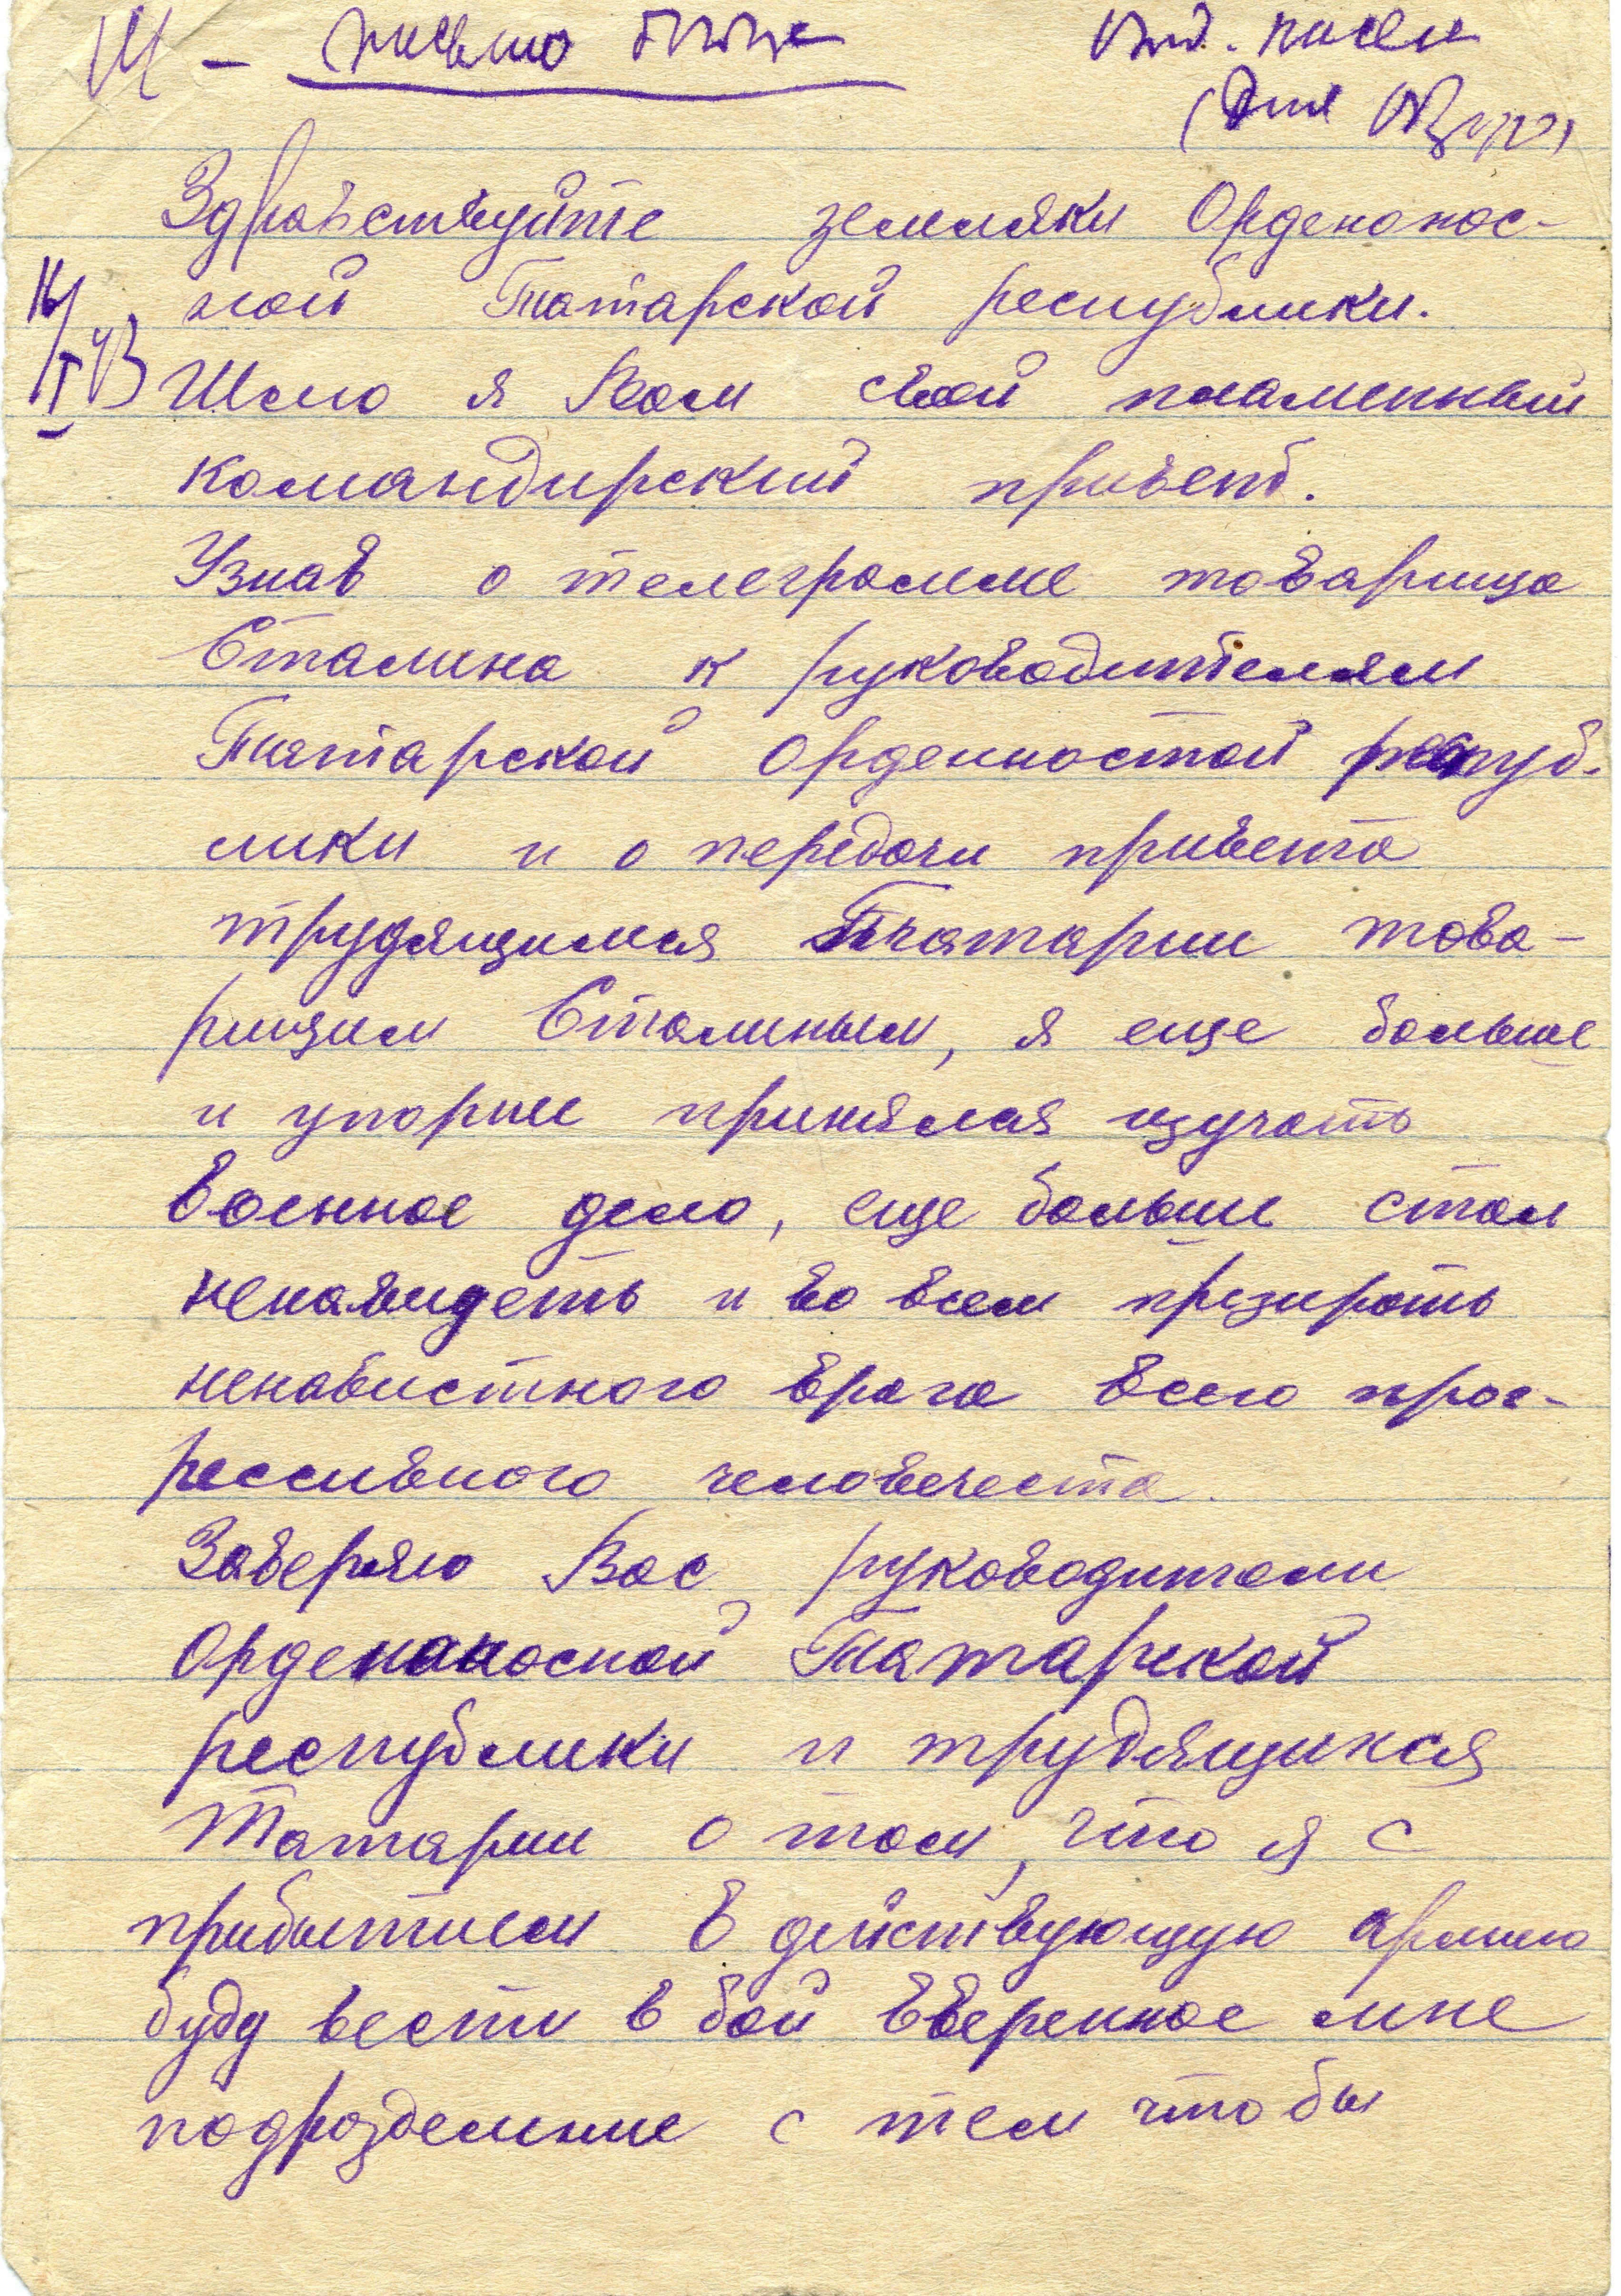 письмо
Здравствуйте земляки Орденонос-
ной Татарской республики.
Шлю я Вам свой пламенный
командирский привет.
Узнав о телеграмме товарища
Сталина к руководителям
Татарской Орденостой респуб-
лики и о передачи привета
трудящимся Татарии това-
рищим Сталиным, я еще больше
и упорние принялся изучать
военное дело, еще больше стал
ненавидеть и во всем презирать
ненавистного врага всего прог-
рессивного человечества.
Заверяю Вас руководители
Орденоносной Татарской
республики и трудящихся
Татарии о том, что я с
прибытием в действующую армию
буду вести в бой вверенное мне
подразделение с тем чтобы